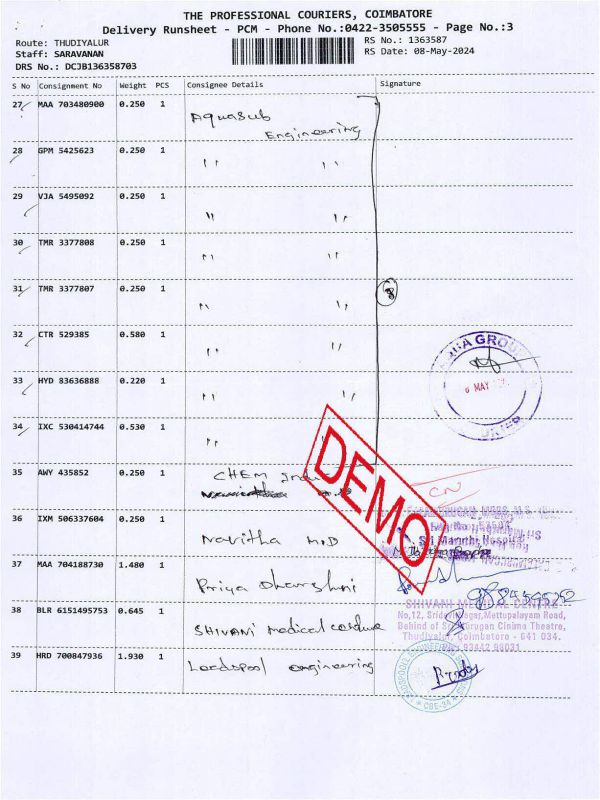 THE PROFESSIONAL COURIERS, COIMBATORE
Delivery Runsheet - PCM - Phone No.:0422-3505555 - Page No.:3
Route: THUDIYALUR
RS No.: 1363587
Staff: SARAVANAN
RS Date: 08-May-2024
DRS No.: DCJB136358703
S No Consignment No Weight PCS Consignee Details Signature
27 MAA 703480900 0.250 1 Aquasub
Engineering
28 GPM 5425623 0.250 1 " "
29 VJA 5495092 0.250 1 " "
30 TMR 3377808 0.250 1 " "
31 TMR 3377807 0.250 1 " " 8
32 CTR 529385 0.580 1 " "
33 HYD 83636888 0.220 1 " "
34 IXC 530414744 0.530 1 "
AQUA GROUP
MAY
DEMO
35 AWY 435852 0.250 1 CHEM
36 IXM 506337604 0.250 1 Navitha M.D
37 MAA 704188730 1.480 1 Priya Dharshni
38 BLR 6151495753 0.645 1 SHIVANI medical
SHIVANI MEDICAL CENTRE
No,12, Nagar, Mettupalayam Road,
Behind of Cinima Theatre,
Thudiyalur, Coimbatore - 641 034.
39 HRD 700847936 1.930 1 Leadspool engineering
CBE-34